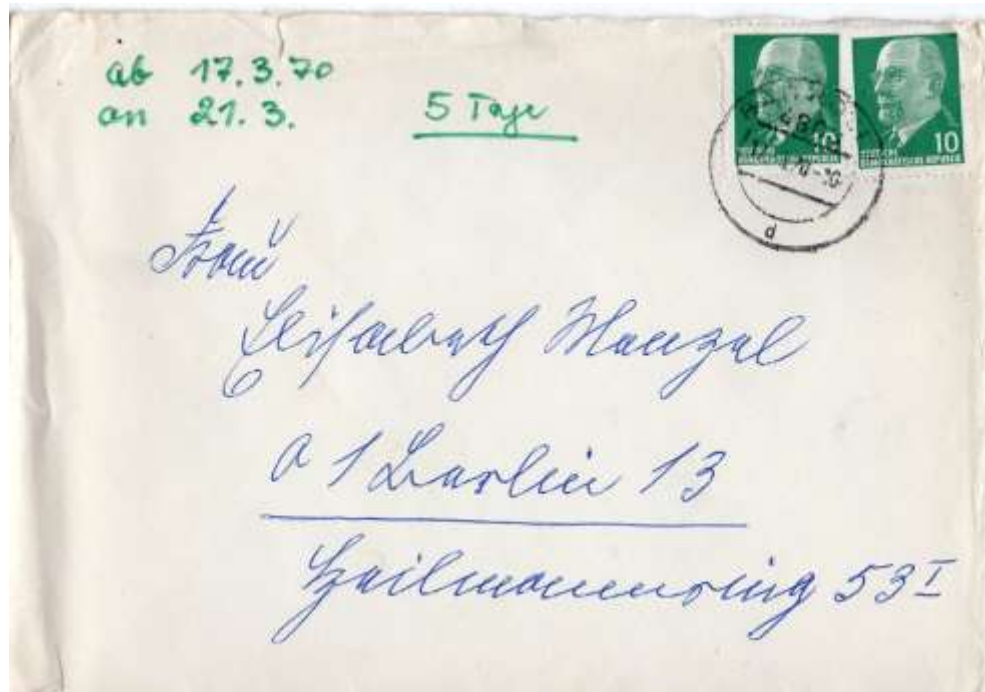 ab 17.3.70
an 21.3.
5 Tage
10
DEUTSCHE
DEMOKRATISCHE REPUBLIK
10
DEUTSCHE
DEMOKRATISCHE REPUBLIK
d
Frau
Elisabeth Menzel
1 Berlin 13
Heilmannring 53 I